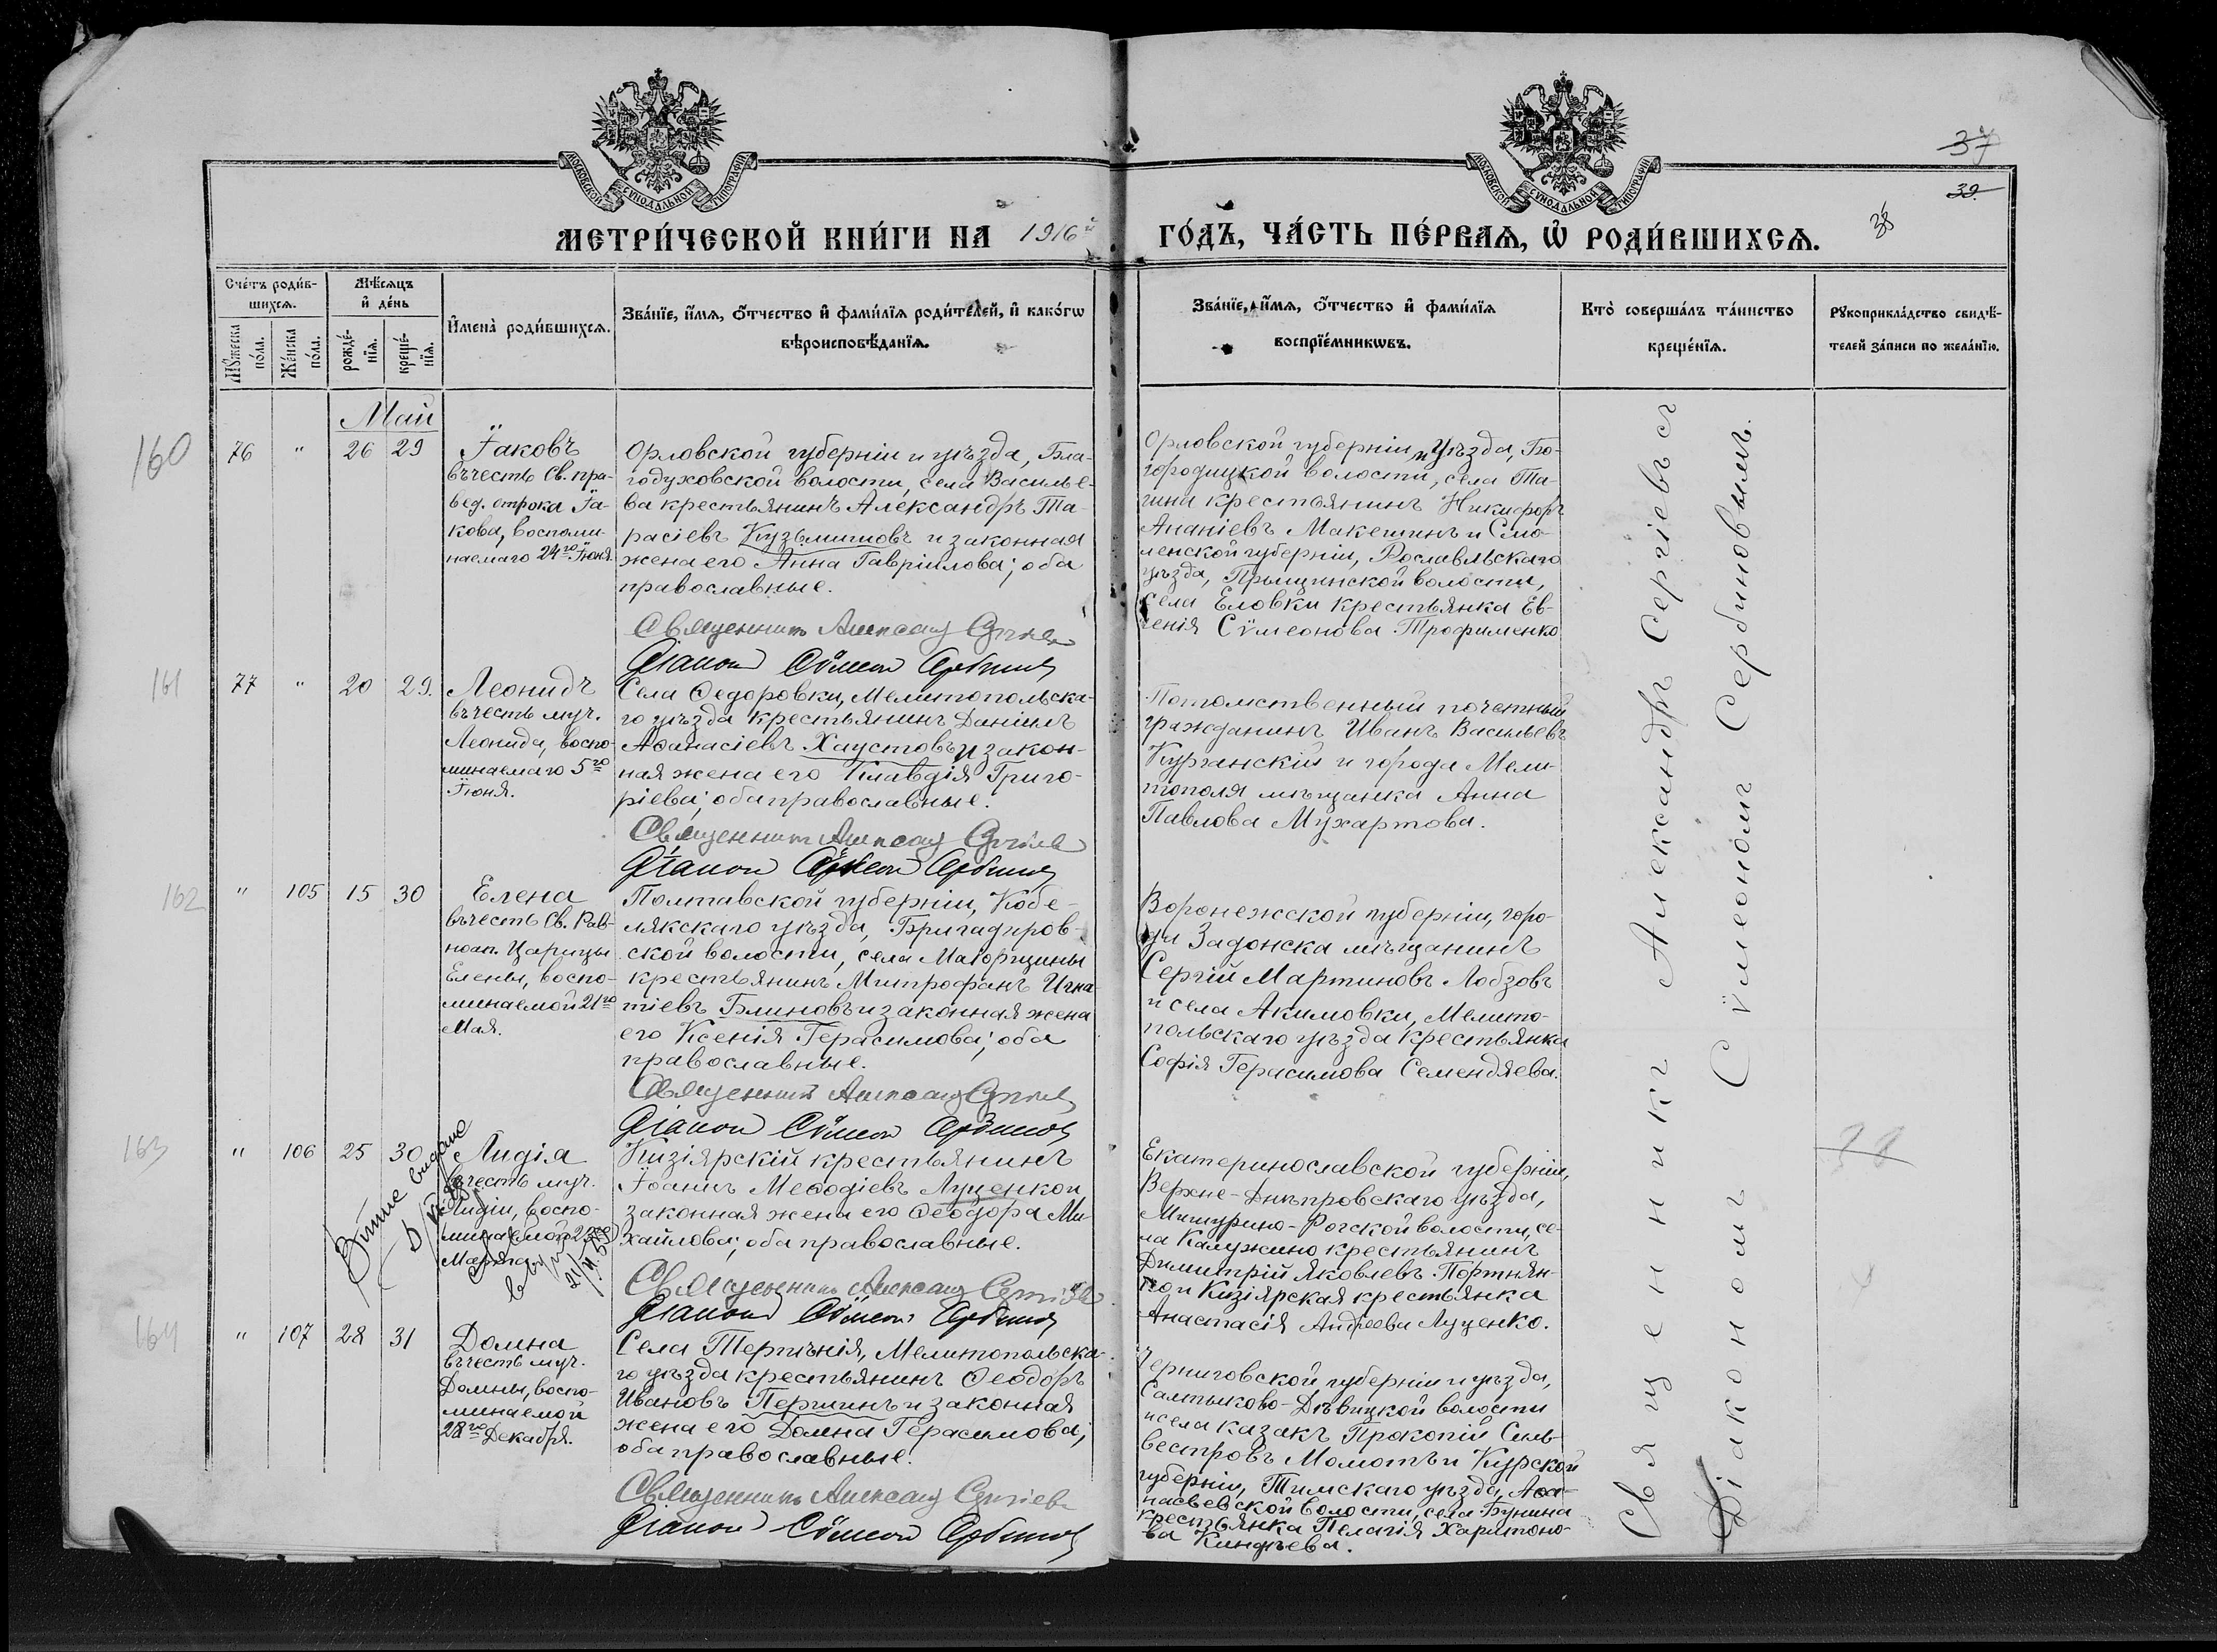 37
39
38
МОСКОВСКОЙ СѴНОДАЛЬНОЙ ТИПОГРАФІИ
МОСКОВСКОЙ СѴНОДАЛЬНОЙ ТИПОГРАФІИ
МЕТРИ́ЧЕСКОЙ КНИ́ГИ НА 1916й
ГО́ДЪ, ЧА́СТЬ ПЕ́РВАЯ, Ѡ РОДИ́ВШИХСЯ.
Сче́тъ роди́в-
шихся.
Мꙋ́жеска по́ла.
Же́нска по́ла.
Мѣ́сяцъ
и҆ де́нь
рожде́-
нїя.
креще́-
нїя.
И҆мена̀ роди́вшихся.
Зва́нїе, и҆́мя, ѻ҆́тчество и҆ фами́лїя роди́телей, и҆ како́гѡ
вѣроисповѣ́данїя.
Зва́нїе, и҆́мя, ѻ҆́тчество и҆ фами́лїя
воспрїе́мникѡвъ.
Кто̀ соверша́лъ та́инство
креще́нїя.
Рꙋкоприкла́дство свидѣ́-
телей за́писи по жела́нїю.
Май
160
76 " 26 29
Іаковъ
въ честь Св. пра-
вед. отрока Іа-
кова, воспоми-
наемаго 24го Іюня.
Орловской губерніи и уѣзда, Бла-
годуховской волости, села Василье-
ва крестьянинъ Александръ Та-
расіевъ Кузьмичовъ и законная
жена его Анна Гавріилова; оба
православные.
Священникъ Александ Сергіев
Діаконъ Сѵмеон Сербинов
Орловской губерніи и Уѣзда, Бо-
городицкой волости, села Та-
гина крестьянинъ Никифоръ
Ананіевъ Макешинъ и Смо-
ленской губерніи, Рославльскаго
уѣзда, Прыщинской волости,
села Еловки крестьянка Ев-
генія Сѵмеонова Трофименко
161
77 " 20 29.
Леонидъ
въ честь муч.
Леонида, воспо-
минаемаго 5го
Іюня.
Села Ѳедоровки, Мелитопольска-
го уѣзда крестьянинъ Даніилъ
Аѳанасіевъ Хаустовъ и закон-
ная жена его Клавдія Григо-
ріева; оба православные.
Священникъ Александ Сергіев
Діаконъ Сѵмеон Сербинов
Потомственный почетный
гражданинъ Иванъ Васильевъ
Курганскій и города Мели-
тополя мѣщанка Анна
Павлова Мухартова.
162
" 105 15 30
Елена
въ честь Св. Рав-
ноап. Царицы
Елены, воспо-
минаемой 21го
Мая.
Полтавской губерніи, Кобе-
лякскаго уѣзда, Бригадиров-
ской волости, села Маіорщины
крестьянинъ Митрофанъ Игна-
тіевъ Блиновъ и законная жена
его Ксенія Герасимова; оба
православные.
Священникъ Александ Сергіев
Діаконъ Сѵмеон Сербинов
Воронежской губерніи, горо-
да Задонска мѣщанинъ
Сергій Мартиновъ Лобзовъ
и села Акимовки, Мелито-
польскаго уѣзда крестьянка
Софія Герасимова Семендяева.
163
" 106 25 30
Лидія
въ честь муч.
Лидіи, воспо-
минаемой 23го
Марта.
Кизіярскій крестьянинъ
Іоаннъ Меѳодіевъ Луценко и
законная жена его Ѳеодора Ми-
хайлова; оба православные.
Священникъ Александ Сергіев
Діаконъ Сѵмеон Сербинов
Екатеринославской губерніи,
Верхне-Днѣпровскаго уѣзда,
Мишурино-Рогской волости, се-
ла Калужино крестьянинъ
Димитрій Яковлевъ Портнян-
ко и Кизіярская крестьянка
Анастасія Андреева Луценко.
38
164
" 107 28 31
Домна
въ честь муч.
Домны, воспо-
минаемой
28го Декабря.
Села Терпѣнія, Мелитопольска-
го уѣзда крестьянинъ Ѳеодоръ
Ивановъ Першинъ и законная
жена его Домна Герасимова;
оба православные.
Священникъ Александ Сергіев
Діаконъ Сѵмеон Сербинов
Черниговской губерніи и уѣзда,
Салтыково-Дѣвицкой волости
и села казакъ Прокопій Силь-
вестровъ Момотъ и Курской
губерніи, Тимскаго уѣзда, Аѳа-
насьевской волости, села Бунина
крестьянка Пелагія Харитоно-
ва Киндѣева.
Священникъ Александръ Сергіевъ съ
Діакономъ Сѵмеономъ Сербиновымъ.